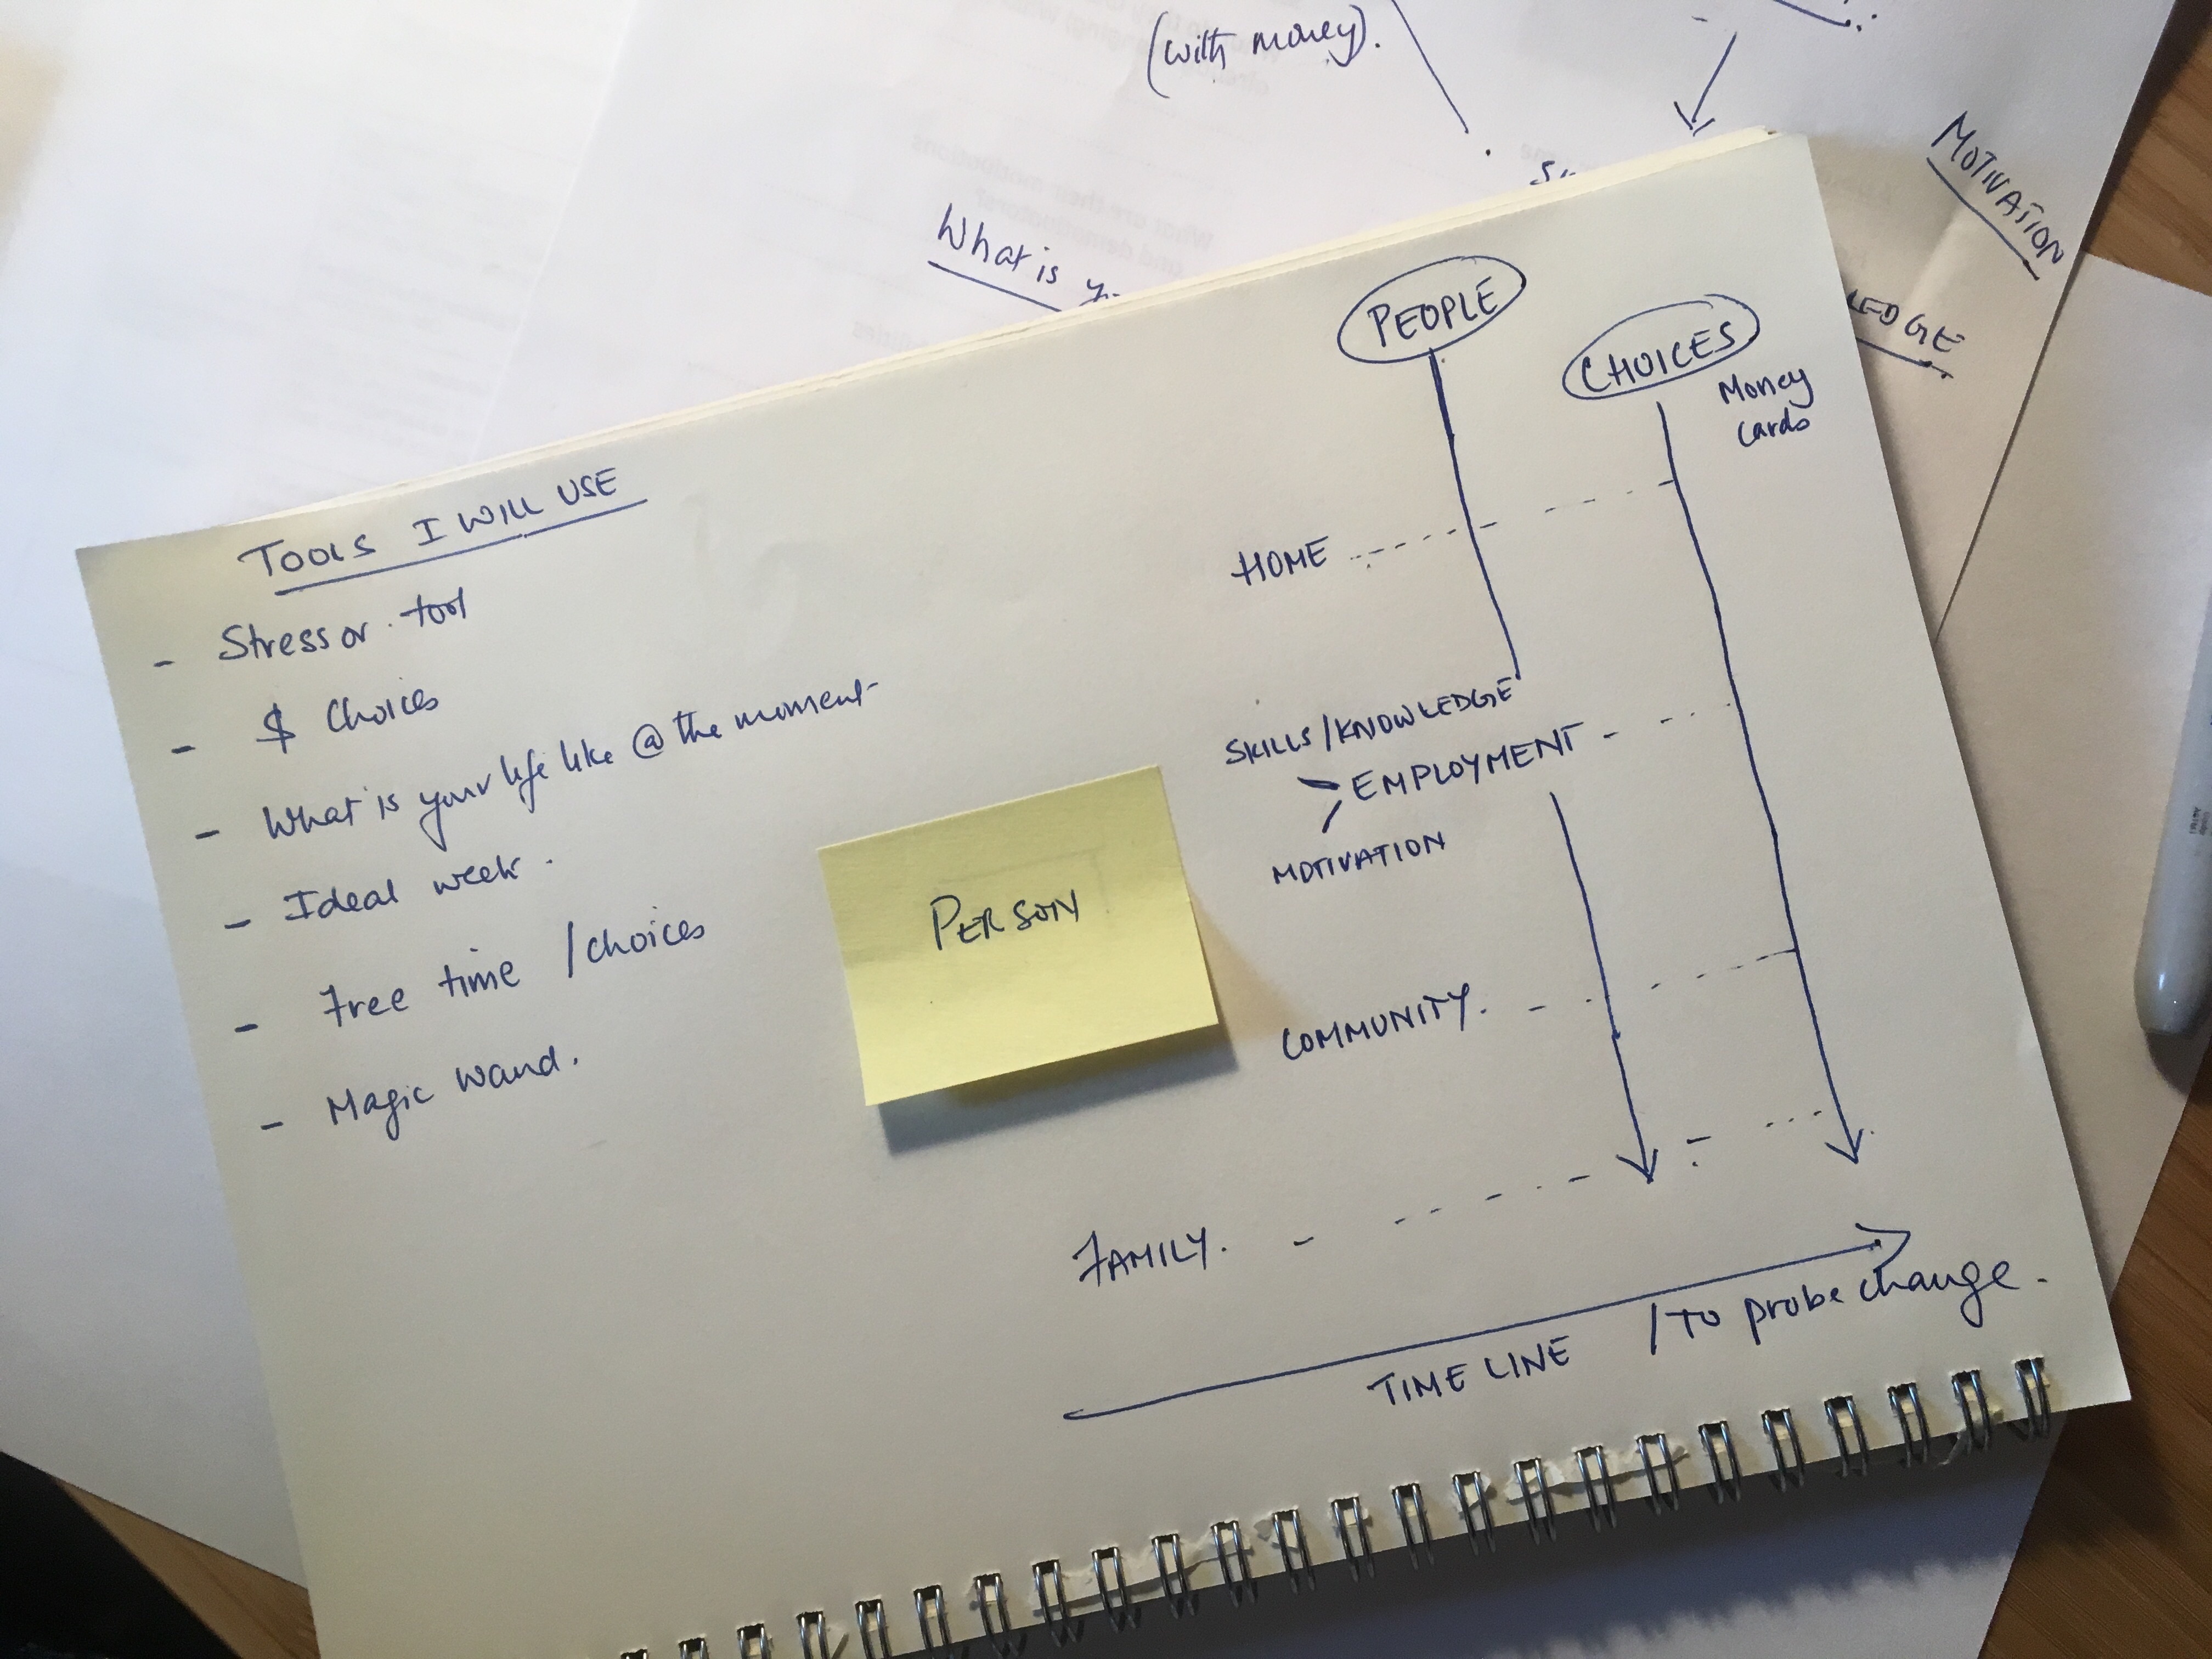 (with money).
MOTIVATION
What is
TOOLS I WILL USE
- Stressor tool
- $ Choices
- What is your life like @ the moment
- Ideal week.
- Free time / choices
- Magic wand.
PERSON
PEOPLE
CHOICES
Money
cards
HOME
SKILLS/KNOWLEDGE
EMPLOYMENT
MOTIVATION
COMMUNITY.
FAMILY.
TIME LINE / To probe change.